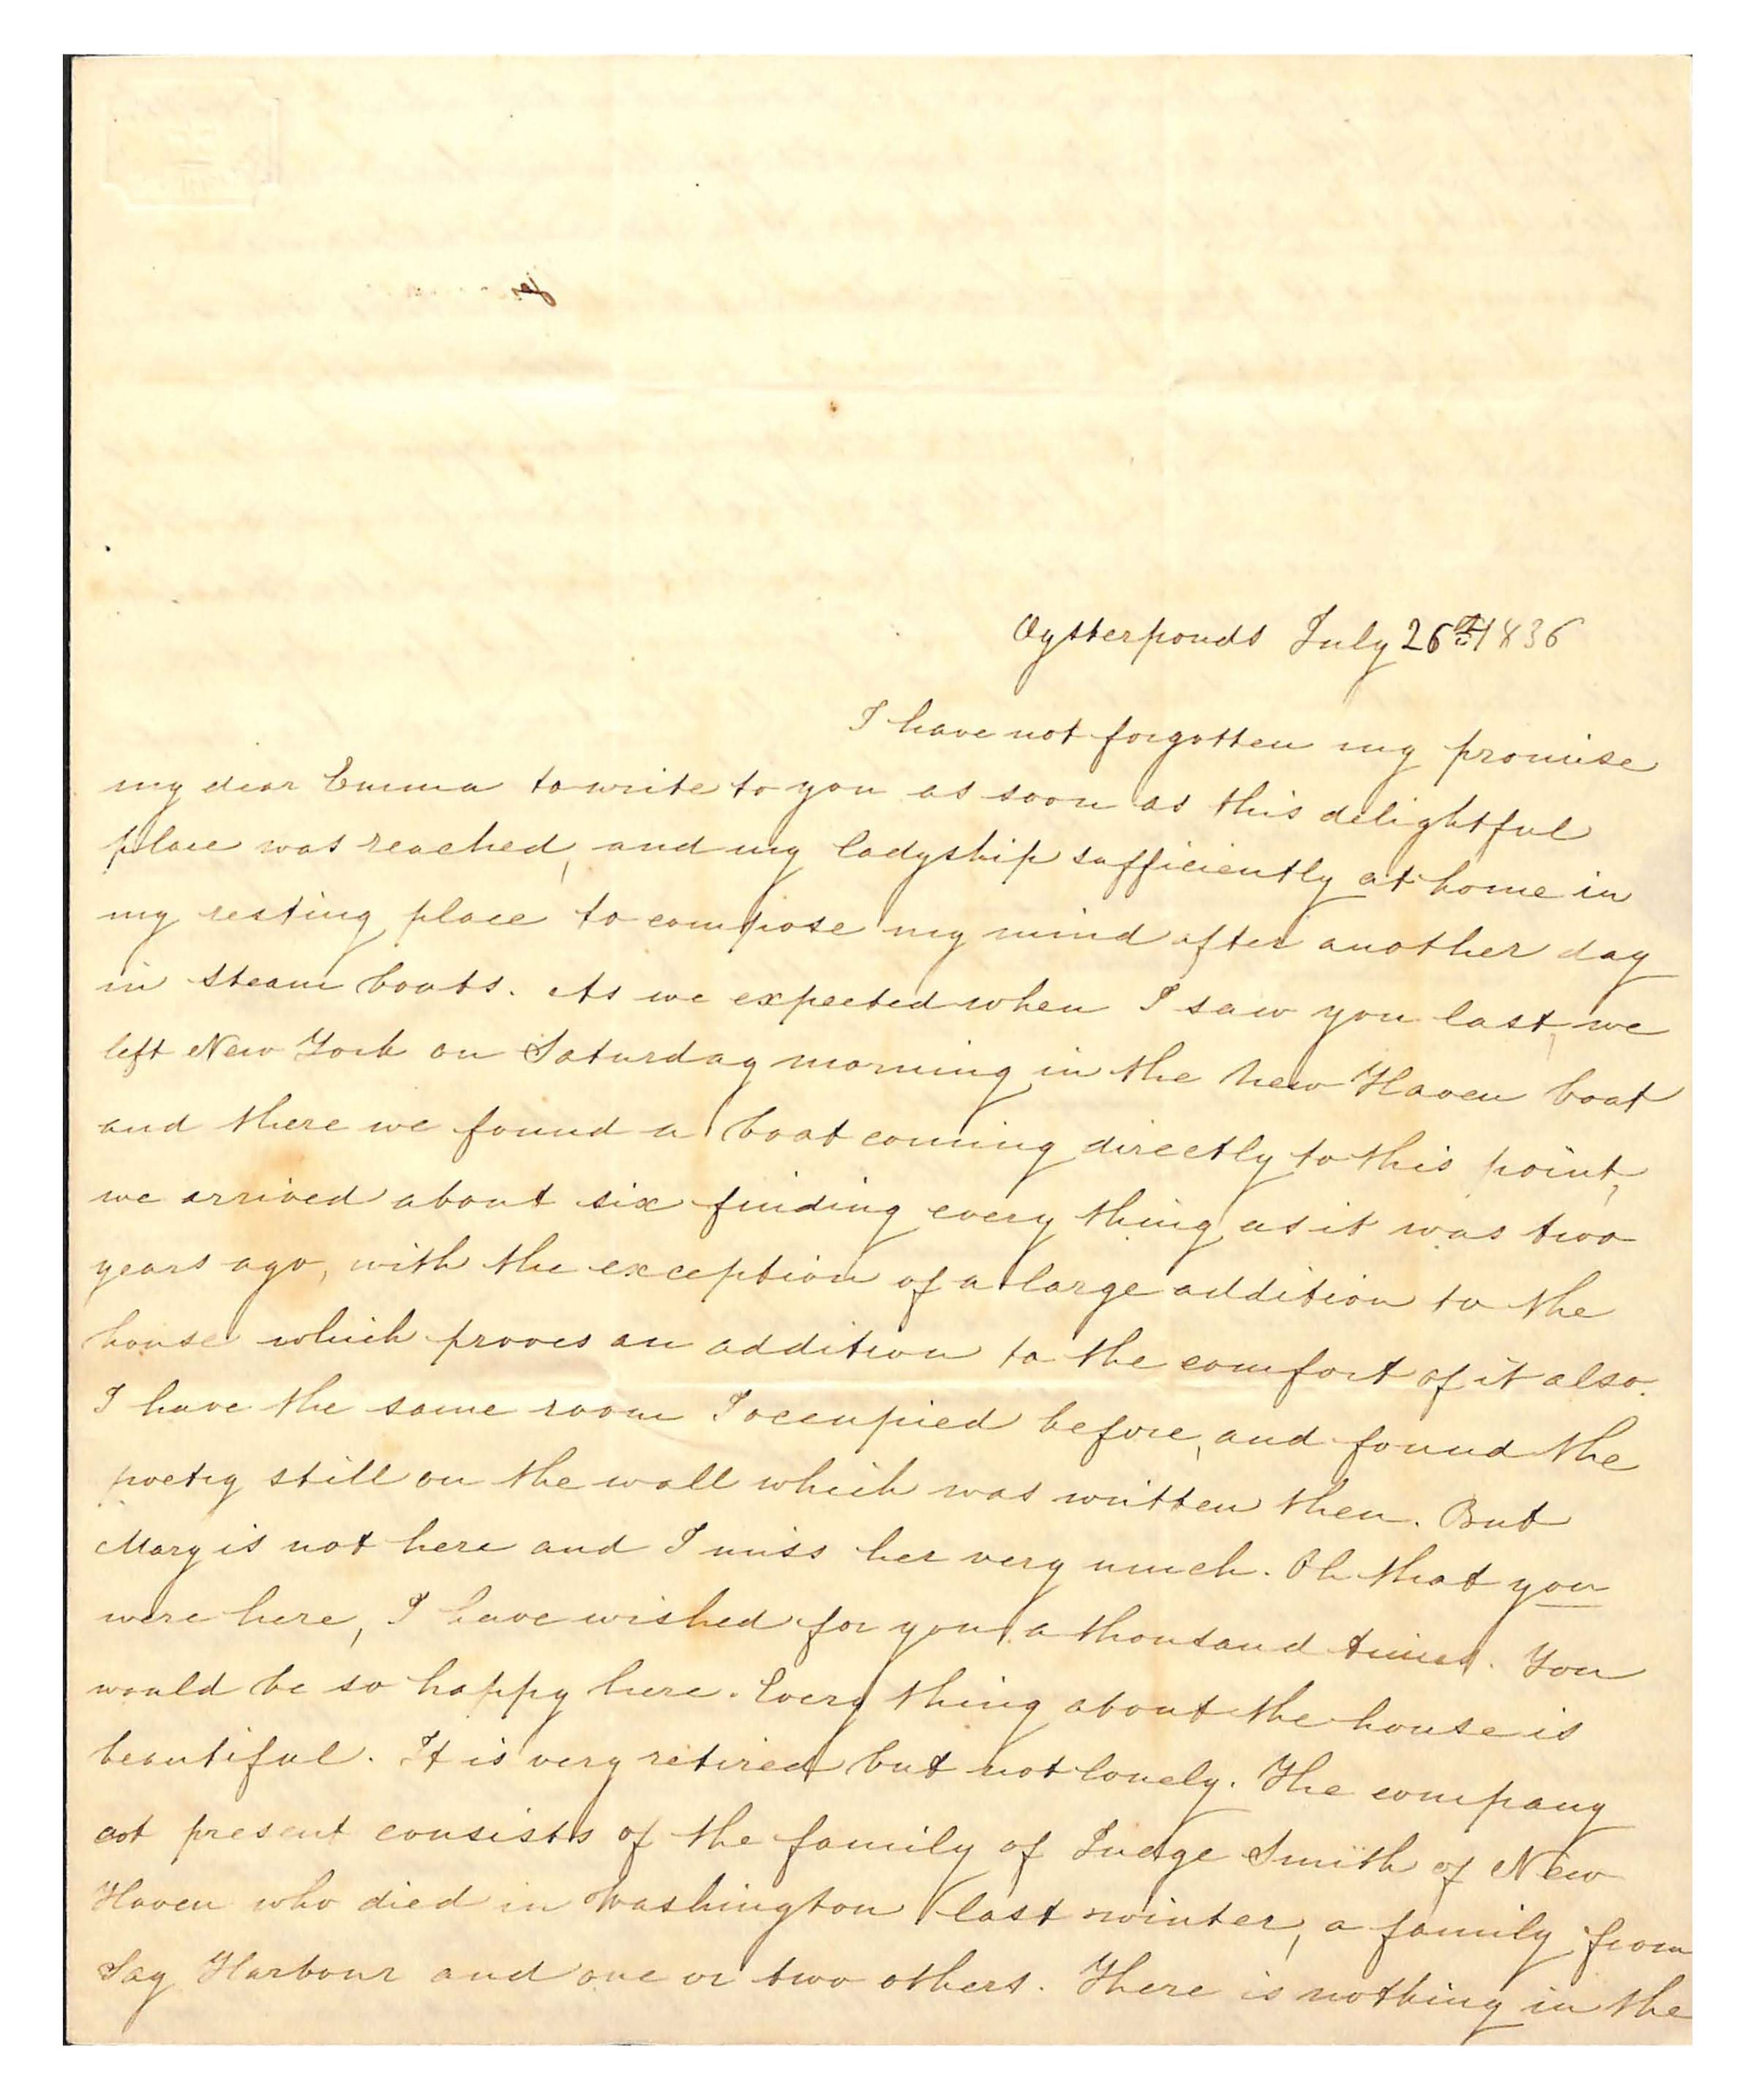 Oysterponds July 26th 1836
I have not forgotten my promise
my dear Emma to write to you as soon as this delightful
place was reached, and my ladyship sufficiently at home in
my resting place to compose my mind after another day
in steam boats. As we expected when I saw you last, we
left New York on Saturday morning in the New Haven boat
and there we found a boat coming directly to this point,
we arrived about six finding every thing as it was two
years ago, with the exception of a large addition to the
house which proves an addition to the comfort of it also.
I have the same room I occupied before, and found the
poetry still on the wall which was written then. But
Mary is not here and I miss her very much. Oh that you
were here, I have wished for you a thousand times. You
would be so happy here. Every thing about the house is
beautiful. It is very retired but not lonely. The company
at present consists of the family of Judge Smith of New
Haven who died in Washington last winter, a family from
Sag Harbour and one or two others. There is nothing in the